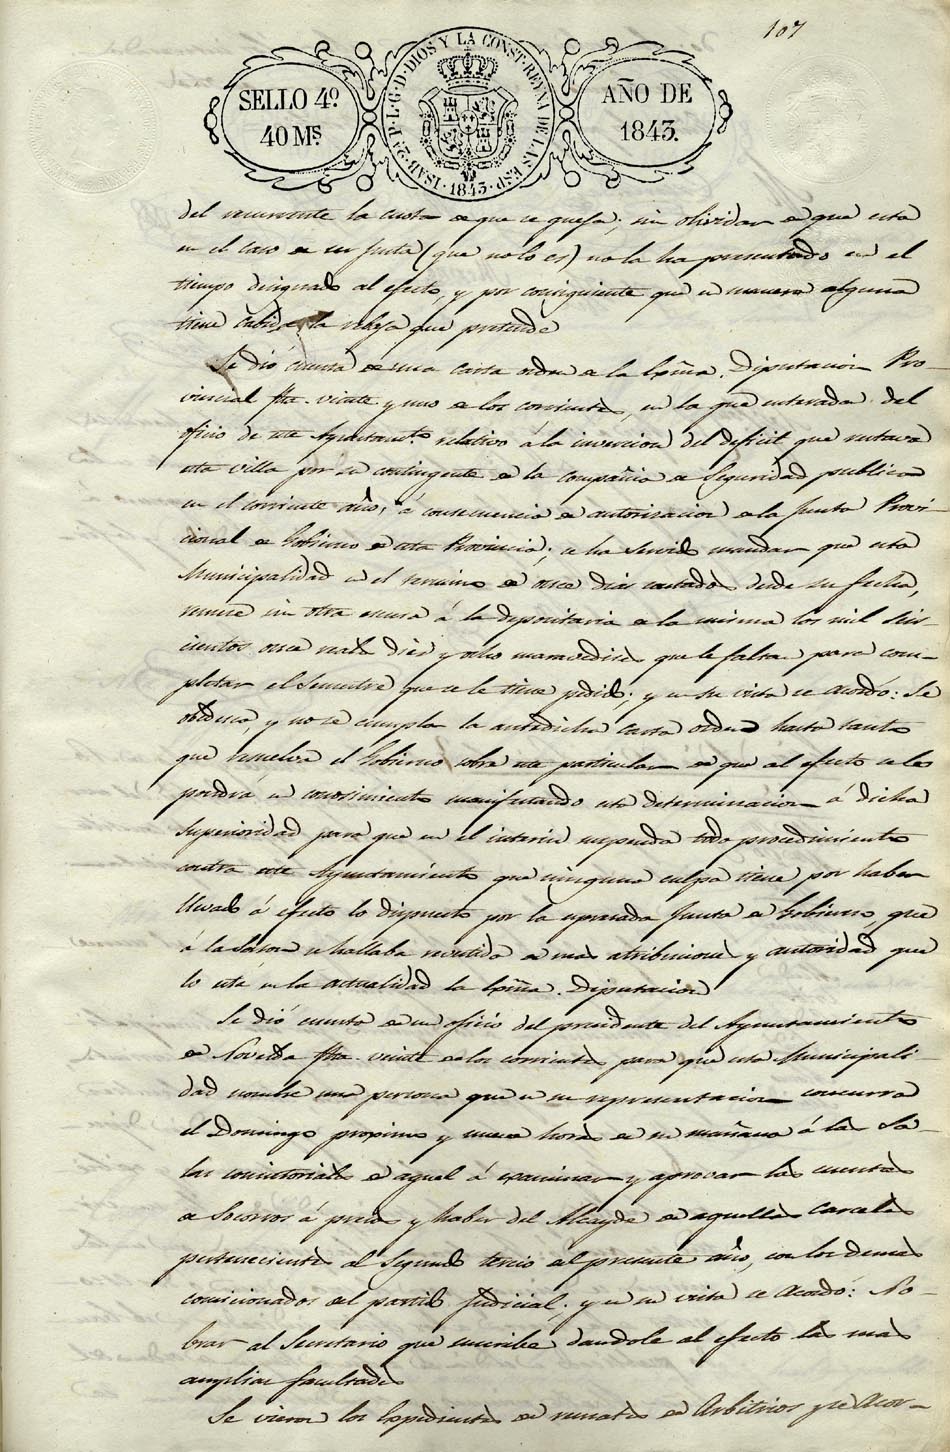 107
SELLO 4º
40 Ms.
ISAB. 2ª P. L. G. D. DIOS Y LA CONST. REYNA DE LAS ESP. 1843.
AÑO DE
1843.
del recurrente la cuota de que se queja; sin olvidar de que esta
en el caso de ser justa (que no lo es) no la ha presentado en el
tiempo designado al efecto, y por consiguiente que en manera alguna
tiene cabida la rebaja que pretende
Se dió cuenta de una carta orden de la Exma. Diputacion Pro-
vincial fha. veinte y uno de los corrientes, en la que enterada del
oficio de este Ayuntamto. relativo á la invencion del deficit que restava
esta villa por su contingente de la compañia de Seguridad publica
en el corriente año, á consecuencia de autorizacion de la Junta Provi-
cional de Gobierno de esta Provincia; se ha servido mandar que esta
Municipalidad en el termino de once dias contados desde su fecha,
remese sin otra escusa á la depositaria de la misma los mil seis-
cientos once reales diez y ocho maravedises que le faltan para com-
pletar el Semestre que se le tiene pedido; y en su vista se Acordó: Se
obedesca, y no se cumpla la antedicha carta orden hasta tanto
que resuelva el Gobierno sobre este particular de que al efecto se les
pondrá en conocimiento manifestando esta determinacion á dicha
Superioridad para que en el interin suspenda todo procedimiento
contra este Ayuntamiento que ninguna culpa tiene por haber
llevado á efecto lo dispuesto por la espresada Junta de Gobierno, que
á la sazon se hallaba revestida de mas atribuciones y autoridad que
lo está en la actualidad la Exma. Diputacion
Se dió cuenta de un oficio del presidente del Ayuntamiento
de Novelda fha. veinte de los corrientes para que esta Municipali-
dad nombre una persona que en su representacion concurra
el Domingo proximo y nueve horas de su mañana á las Sa-
las consistoriales de aquel á examinar y aprovar las cuentas
de Socorros á presos y haber del Alcayde de aquellas Carceles
pertenecientes al Segundo tercio del presente año, con los demas
comicionados del partido judicial; y en su vista se Acordó: No-
brar al Secretario que suscribe dandole al efecto las mas
amplias facultades
Se vieron los Expedientes de remates de Arbitrios y se Acor-